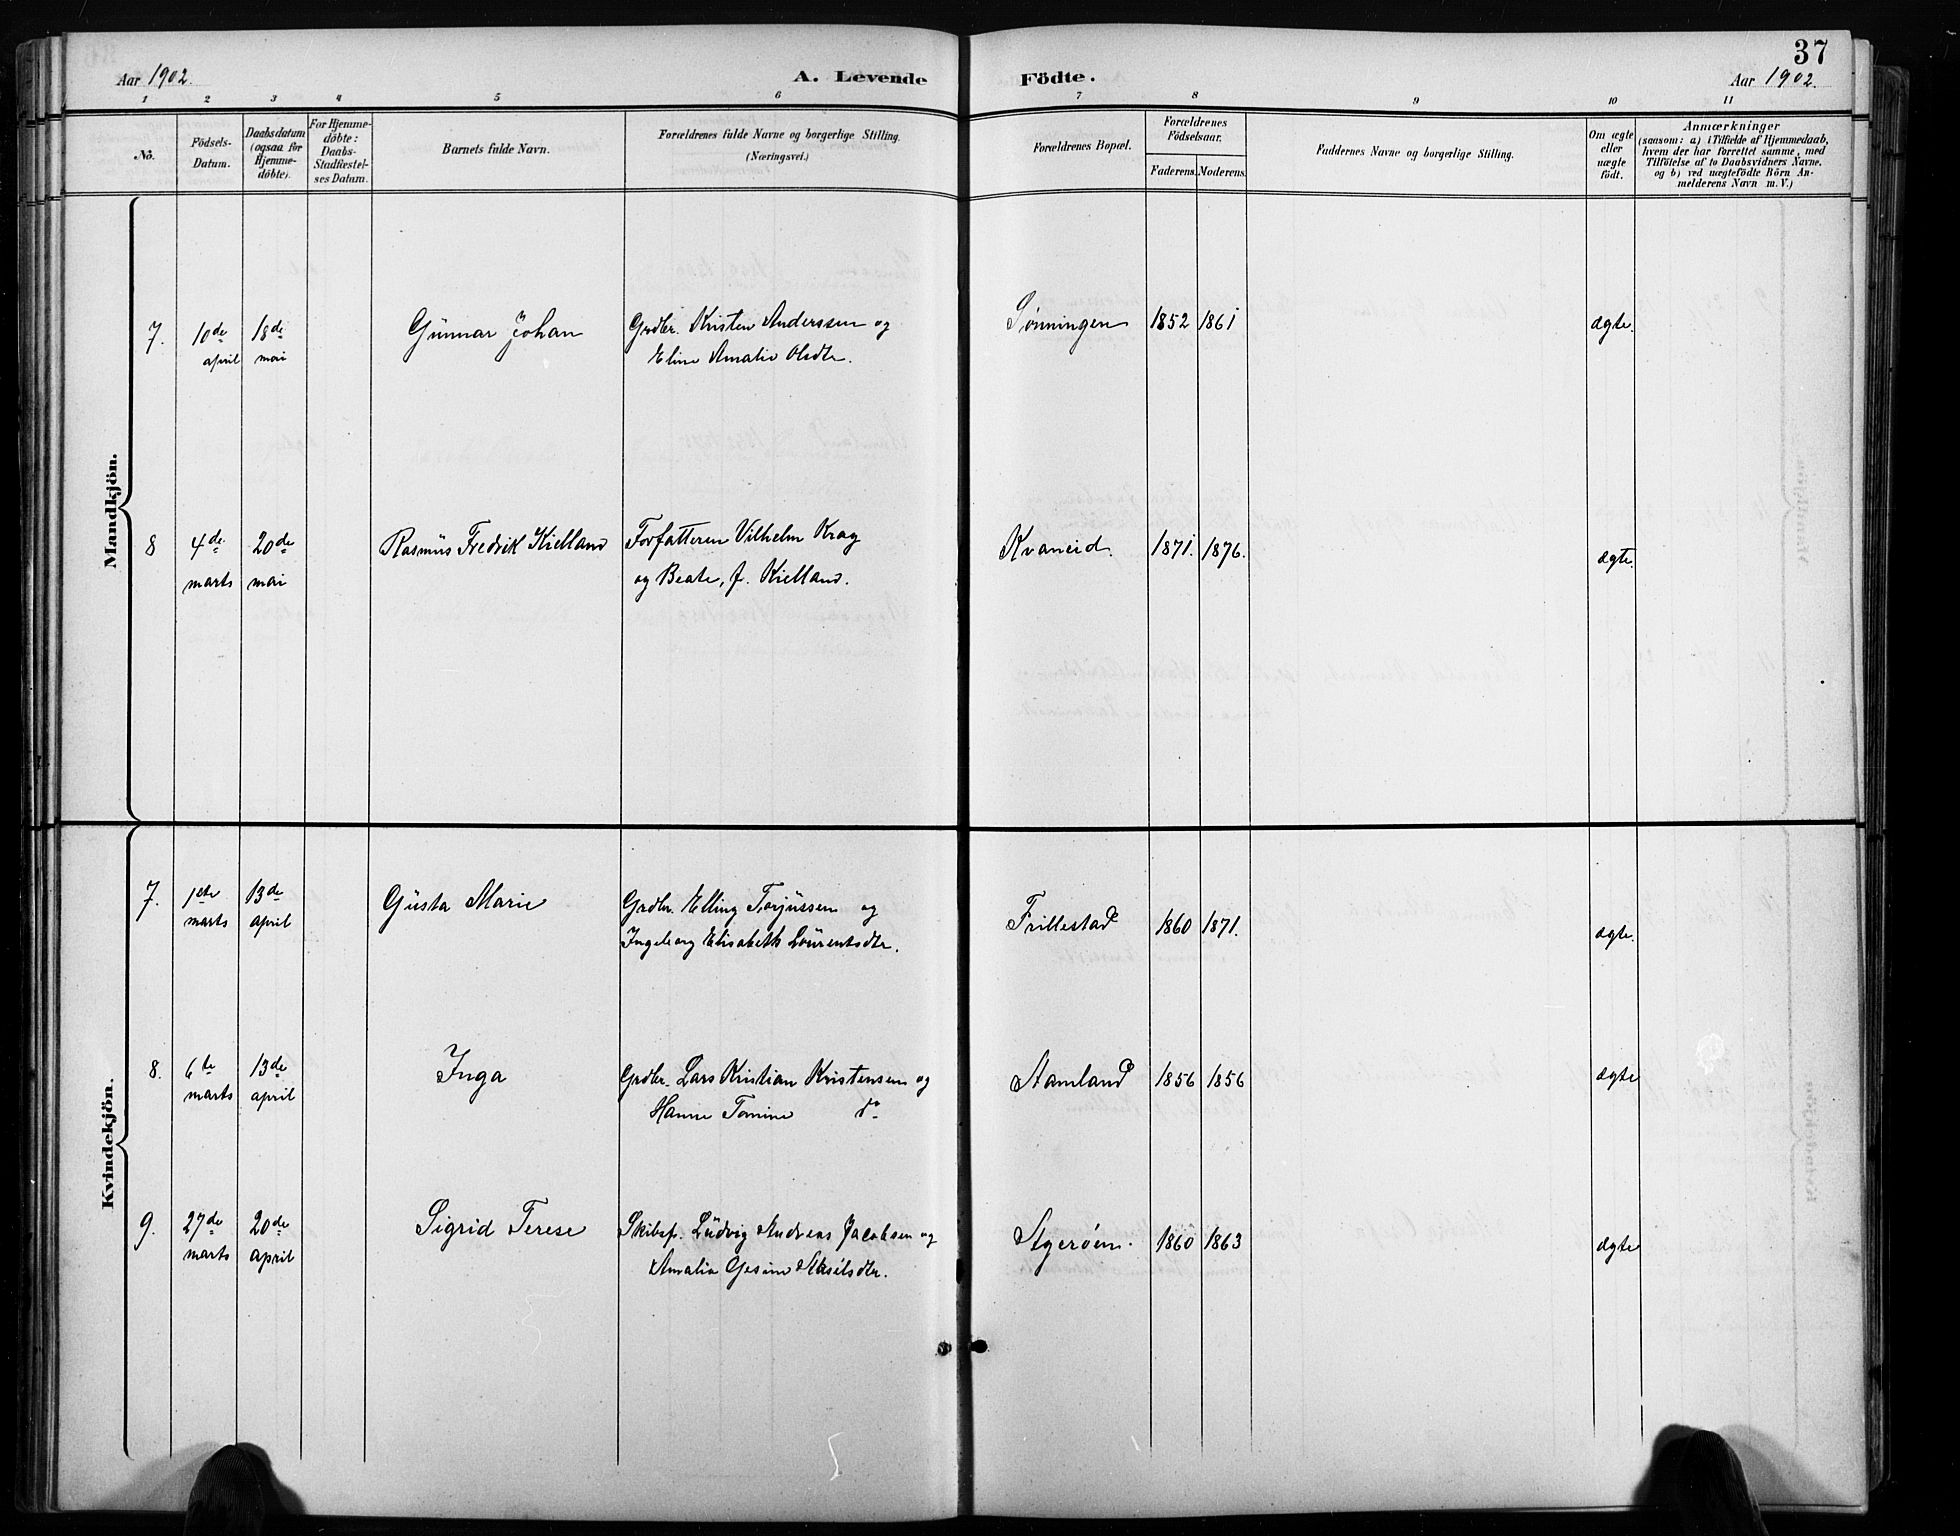 37
Aar 1902.
A. Levende Födte.
Aar 1902.
1 2 3 4 5 6 7 8 9 10 11
No.
Födsels-Datum.
Daabsdatum (ogsaa for Hjemme-döbte).
For Hjemme-döbte: Daabs-Stadfæstel-ses Datum.
Barnets fulde Navn.
Forældrenes fulde Navne og borgerlige Stilling. (Næringsvei.)
Forældrenes Bopæl.
Forældrenes Födselsaar.
Faderens. Moderens.
Faddernes Navne og borgerlige Stilling.
Om ægte eller uægte födt.
Anmærkninger
(saasom: a) i Tilfælde af Hjemmedaab,
hvem der har forrettet samme, med
Tilföielse af to Daabsvidners Navne.
og b) ved uægtefödte Börn An-
melderens Navn m. V.)
Mandkjön.
7. 10de april 18de mai Gunnar Johan Grdbr. Kristen Anderssen og Sønningen 1852 1861 ægte.
Eline Amalie Olsdtr.
8 4de marts 20de mai Rasmus Fredrik Kielland Forfatteren Vilhelm Krag Kvaneid. 1871. 1876. ægte.
og Beate, f. Kielland.
Kvindekjön.
7. 1ste marts 13de april Gusta Marie Grdbr. Elling Torjussen og Frillestad 1860 1871. ægte.
Ingeborg Elisabeth Laurentsdtr.
8. 6te marts 13de april Inga Grdbr. Lars Kristian Kristensen og Aamland 1856 1856 ægte
Hanne Tomine do
9. 27de marts 20de april Sigrid Terese Skibsf. Ludvig Andreas Jacobsen og Agerøen. 1860 1863 ægte
Amalia Gesine Akselsdtr.